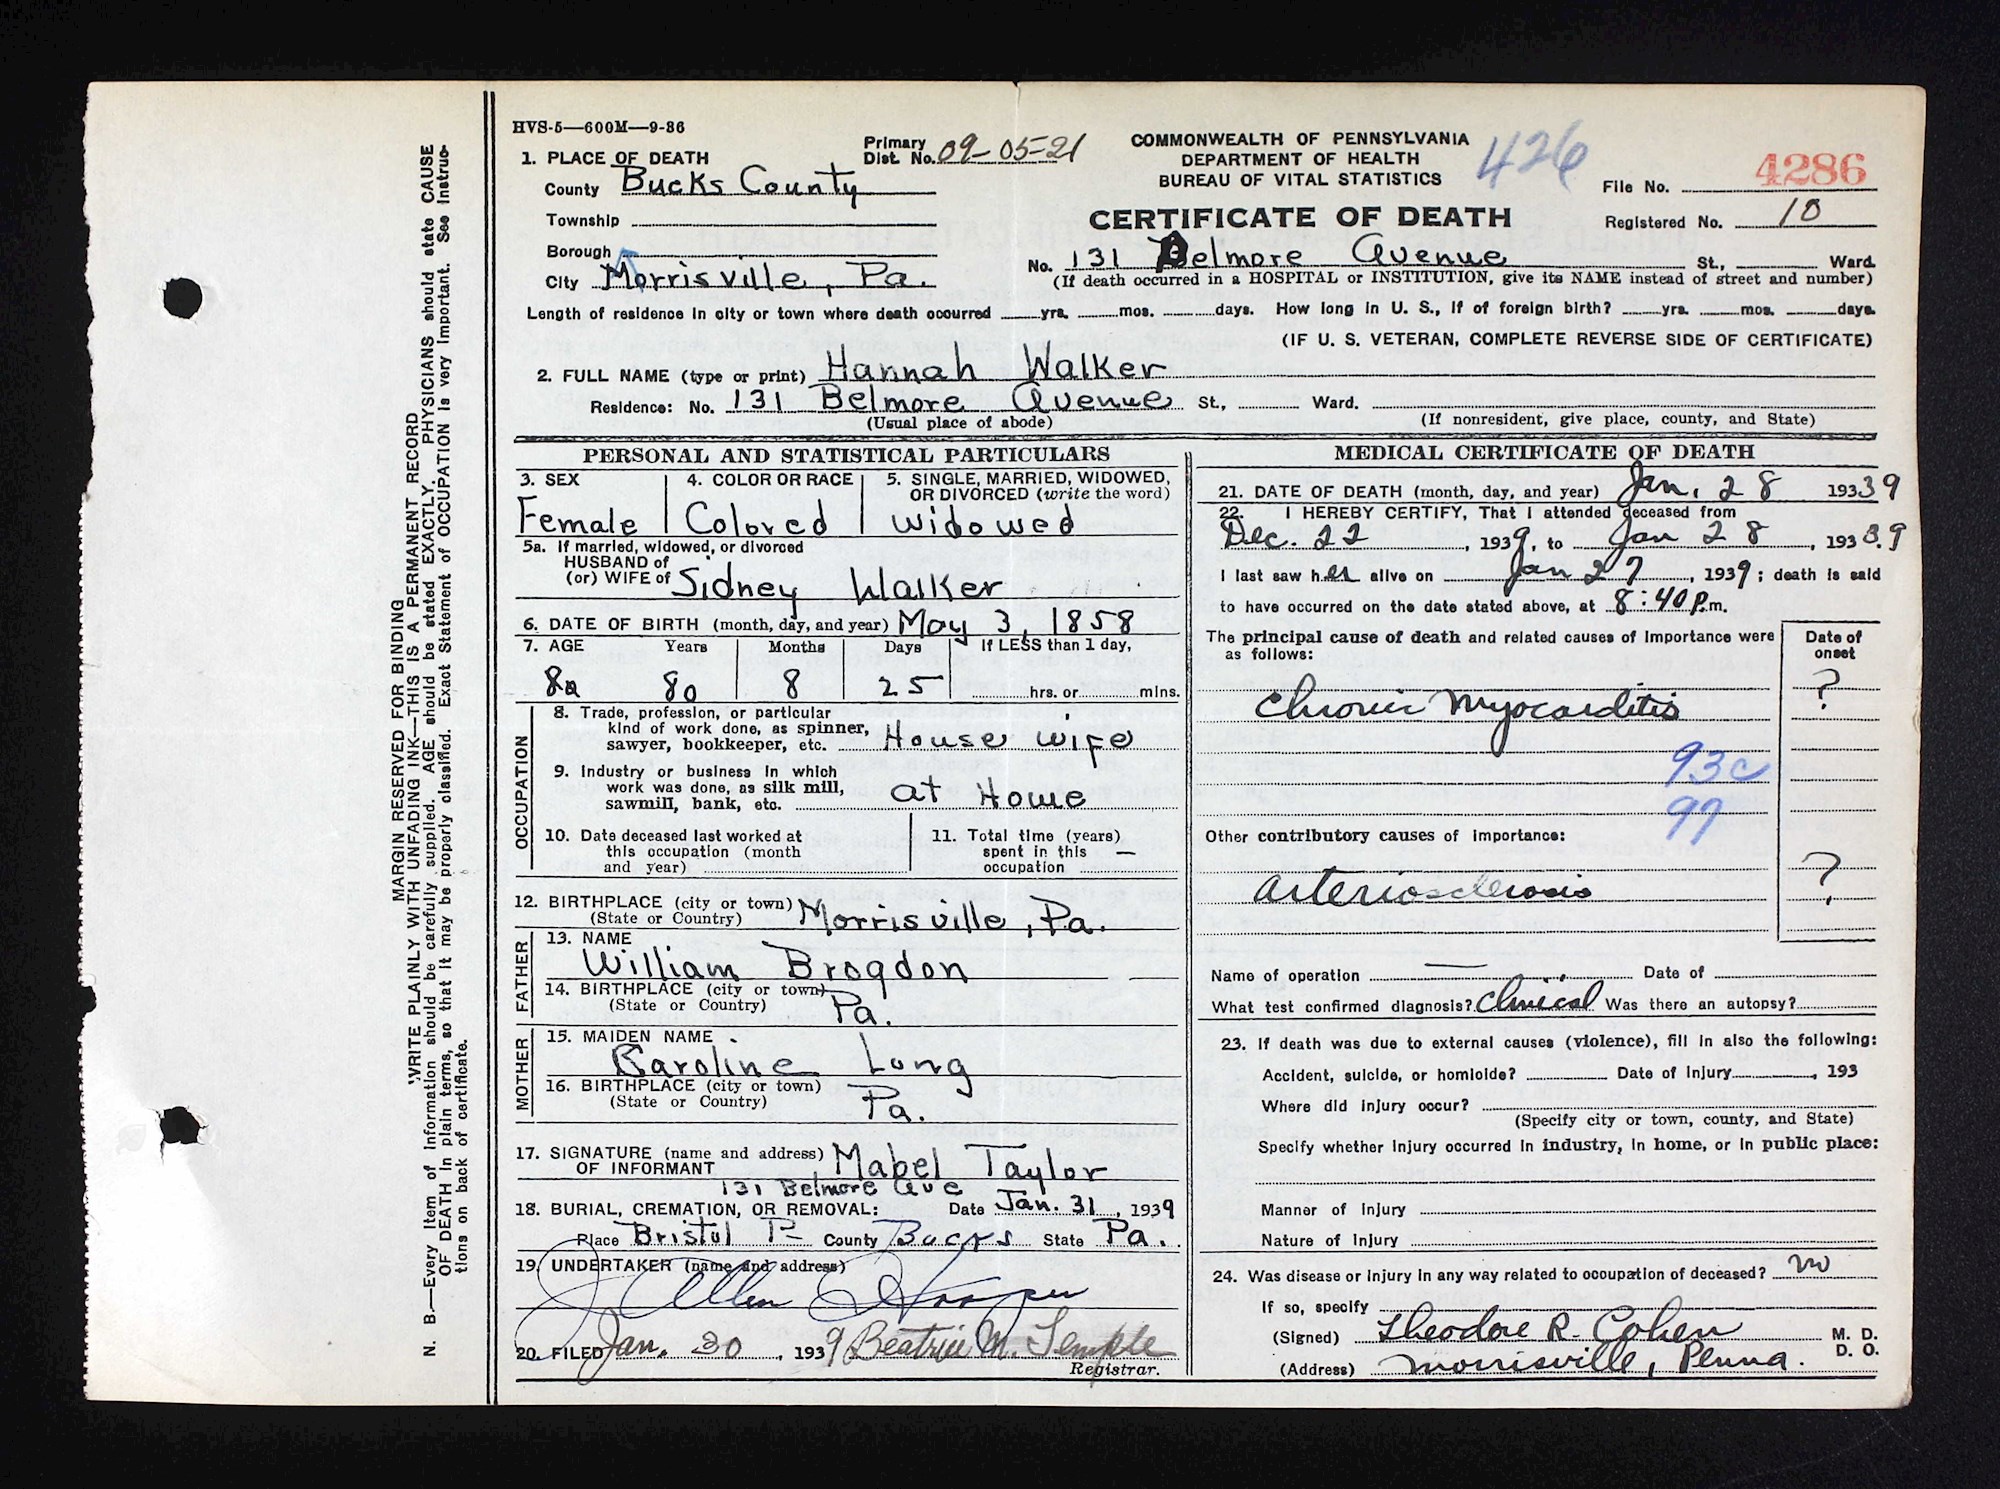 HVS-5—600M—9-36
1. PLACE OF DEATH
County Bucks County
Township
Borough
City Morrisville, Pa.
Primary
Dist. No. 09-05-21
COMMONWEALTH OF PENNSYLVANIA
DEPARTMENT OF HEALTH
BUREAU OF VITAL STATISTICS
426
CERTIFICATE OF DEATH
File No. 4286
Registered No. 10
No. 131 Belmore Avenue St., Ward.
(If death occurred in a HOSPITAL or INSTITUTION, give its NAME instead of street and number)
Length of residence in city or town where death occurred yrs. mos. days. How long in U. S., if of foreign birth? yrs. mos. days.
(IF U. S. VETERAN, COMPLETE REVERSE SIDE OF CERTIFICATE)
2. FULL NAME (type or print) Hannah Walker
Residence: No. 131 Belmore Avenue St., Ward.
(Usual place of abode) (If nonresident, give place, county, and State)
PERSONAL AND STATISTICAL PARTICULARS
3. SEX
Female
4. COLOR OR RACE
Colored
5. SINGLE, MARRIED, WIDOWED,
OR DIVORCED (write the word)
Widowed
5a. If married, widowed, or divorced
HUSBAND of
(or) WIFE of Sidney Walker
6. DATE OF BIRTH (month, day, and year) May 3, 1858
7. AGE Years Months Days If LESS than 1 day,
80 80 8 25 hrs. or mins.
OCCUPATION
8. Trade, profession, or particular
kind of work done, as spinner,
sawyer, bookkeeper, etc. House wife
9. Industry or business in which
work was done, as silk mill,
sawmill, bank, etc. at Home
10. Date deceased last worked at
this occupation (month
and year)
11. Total time (years)
spent in this —
occupation
12. BIRTHPLACE (city or town) Morrisville, Pa.
(State or Country)
FATHER
13. NAME
William Brogdon
14. BIRTHPLACE (city or town)
(State or Country) Pa.
MOTHER
15. MAIDEN NAME
Caroline Long
16. BIRTHPLACE (city or town)
(State or Country) Pa.
17. SIGNATURE (name and address) Mabel Taylor
OF INFORMANT
131 Belmore Ave
18. BURIAL, CREMATION, OR REMOVAL: Date Jan. 31, 1939
Place Bristol P- County Bucks State Pa.
19. UNDERTAKER (name and address)
J Allen Hooper
20. FILED Jan. 30, 1939 Beatrice M. Temple
Registrar.
MEDICAL CERTIFICATE OF DEATH
21. DATE OF DEATH (month, day, and year) Jan. 28 19339
22. I HEREBY CERTIFY, That I attended deceased from
Dec. 22, 1939, to Jan 28, 19339
I last saw her alive on Jan 27, 1939; death is said
to have occurred on the date stated above, at 8:40 P.m.
The principal cause of death and related causes of importance were
as follows:
Date of
onset
?
Chronic Myocarditis
93c
97
Other contributory causes of importance:
?
Arteriosclerosis
Name of operation — Date of
What test confirmed diagnosis? Clinical Was there an autopsy?
23. If death was due to external causes (violence), fill in also the following:
Accident, suicide, or homicide? Date of injury , 193
Where did injury occur?
(Specify city or town, county, and State)
Specify whether injury occurred in industry, in home, or in public place:
Manner of injury
Nature of injury
24. Was disease or injury in any way related to occupation of deceased? no
If so, specify
(Signed) Theodore R. Cohen M. D.
D. O.
(Address) Morrisville, Penna.
MARGIN RESERVED FOR BINDING
WRITE PLAINLY WITH UNFADING INK—THIS IS A PERMANENT RECORD
N. B.—Every item of information should be carefully supplied. AGE should be stated EXACTLY. PHYSICIANS should state CAUSE
OF DEATH in plain terms, so that it may be properly classified. Exact Statement of OCCUPATION is very important. See instruc-
tions on back of certificate.